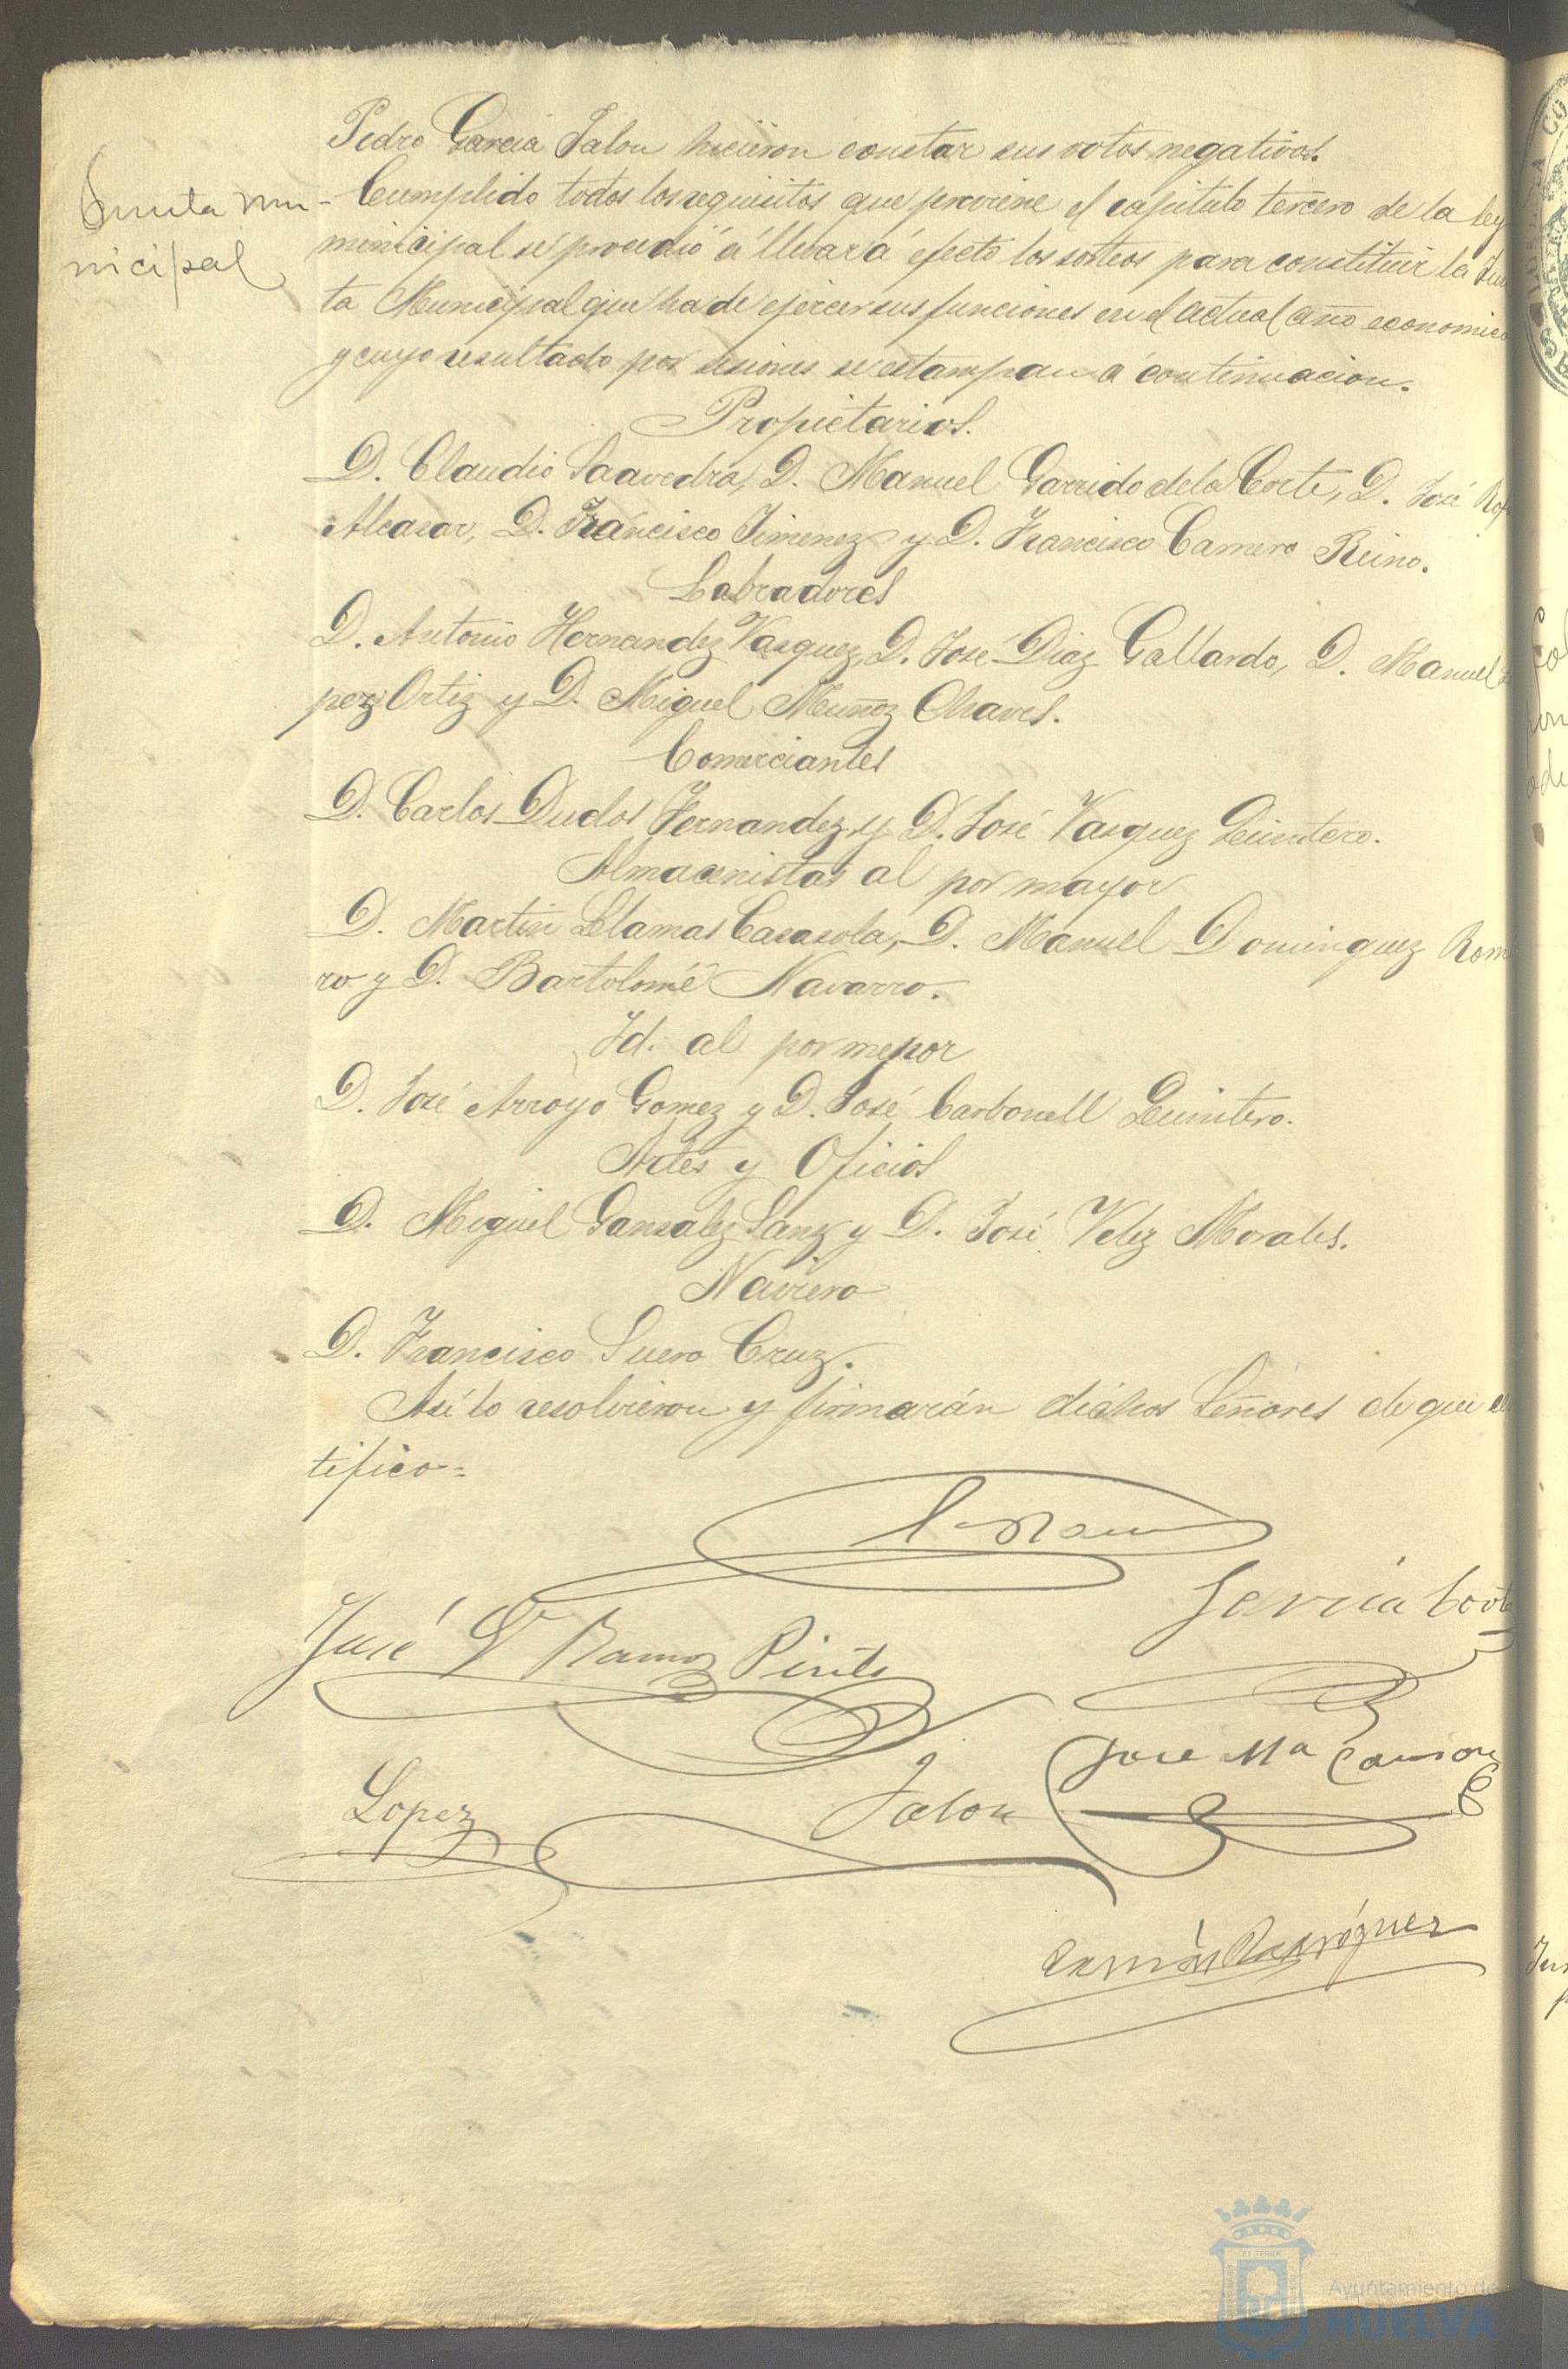 Pedro García Jalon hicieron constar sus votos negativos.
Junta mu-
nicipal
Cumplido todos los requisitos que previene el capitulo tercero de la ley
municipal se procedió á llevar á efecto los sorteos para constituir la Jun
ta Municipal que ha de ejercer sus funciones en el actual año economico
y cuyo resultado por sesiones se estampan á continuacion.
Propietarios.
D. Claudio Saavedra, D. Manuel Garrido de la Corte, D. José
Alcasar, D. Francisco Jimenez y D. Francisco Camero Reino.
Labradores
D. Antonio Hernandez Vasquez, D. José Diaz Gallardo, D. Manuel
pez Ortiz y D. Miguel Muñoz Chaves.
Comerciantes
D. Carlos Dudos Fernandez y D. José Vasquez Quintero.
Almacenistas al por mayor
D. Martin Llamas Casasola, D. Manuel Dominguez Rome
ro y D. Bartolomé Navarro.
Id. al por menor
D. José Arroyo Gomez y D. José Carbonell Quintero.
Artes y Oficios
D. Miguel Gonsalez Sanz y D. José Velez Morales.
Naviero
D. Francisco Suero Cruz.
Así lo resolvieron y firmarán dichos Señores de que
tifico=
García Corte
José Ramos Pinto
Jose Mª
Lopez
Jalon
Ramón Rodríguez
Ayuntamiento de
HUELVA